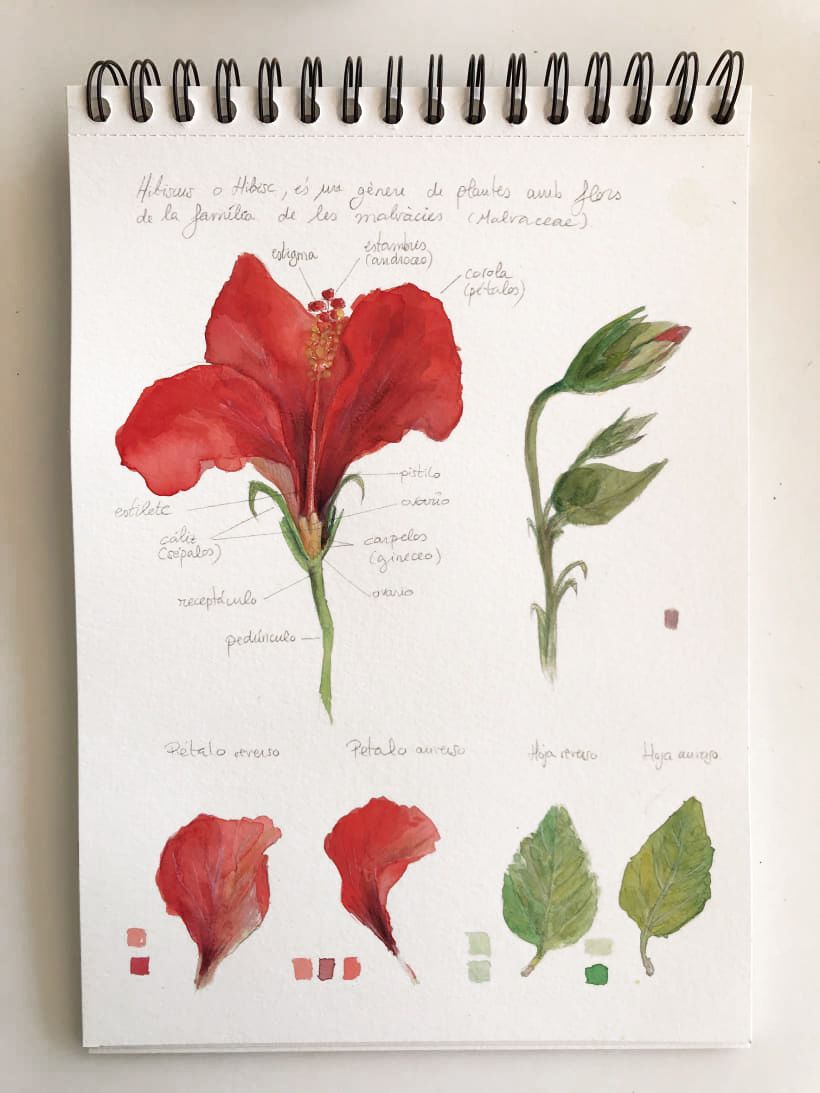 Hibiscus o Hibisc, és un gènere de plantes amb flors
de la família de les malvàcies (Malvaceae)
estigma
estambres
(androceo)
corola
(pétalos)
pistilo
ovario
estilete
cáliz
(sépalos)
carpelos
(gineceo)
receptáculo
ovario
pedúnculo
Pétalo reverso
Petalo anverso
Hoja reverso
Hoja anverso